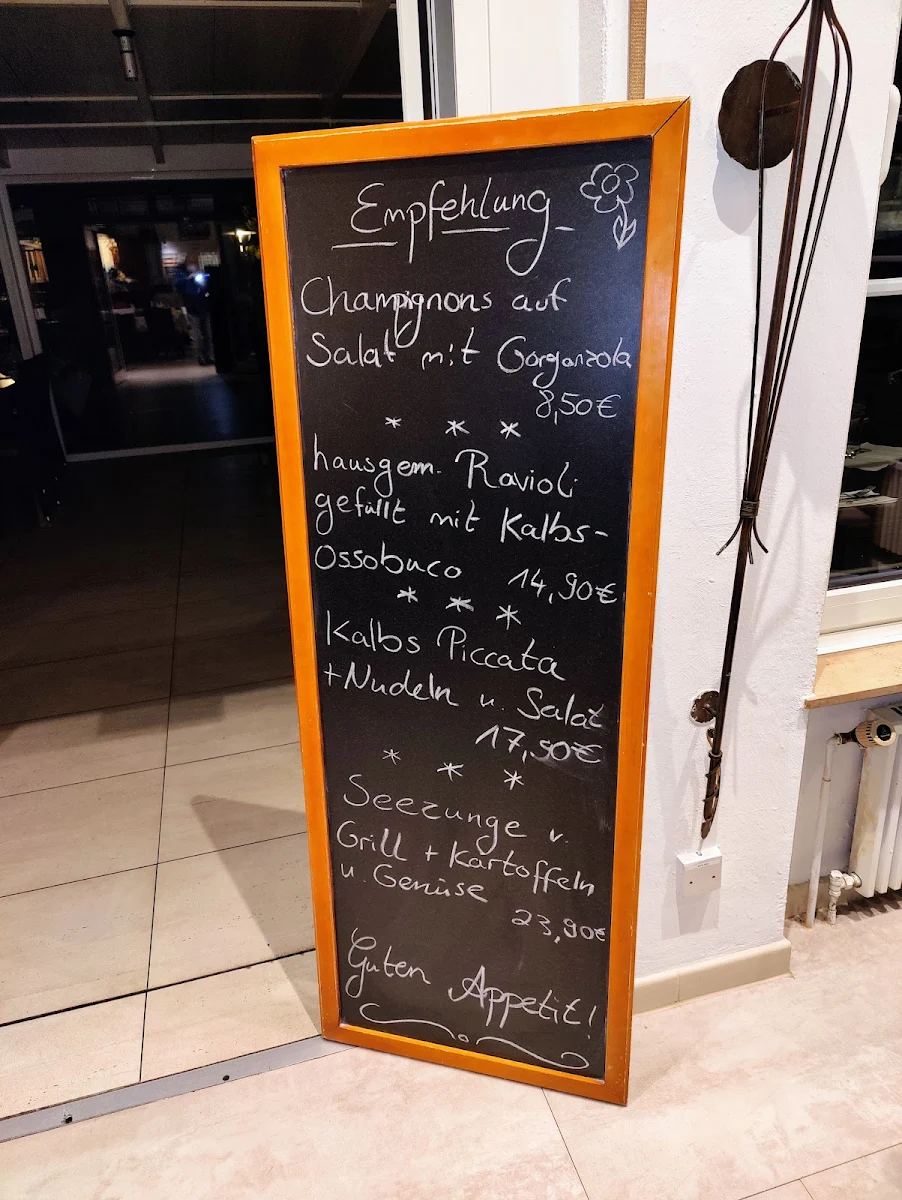 Empfehlung
Champignons auf
Salat mit Gorganzola
8,50€
* * *
hausgem. Ravioli
gefüllt mit Kalbs-
Ossobuco 14,90€
* * *
Kalbs Piccata
+Nudeln u. Salat
17,50€
* * *
Seezunge v.
Grill + Kartoffeln
u. Gemüse
23,90€
Guten Appetit!